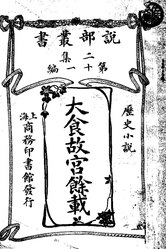 說部叢書
第二集
十一編
歷史小說
大食故宮餘載
上海商務印書館發行